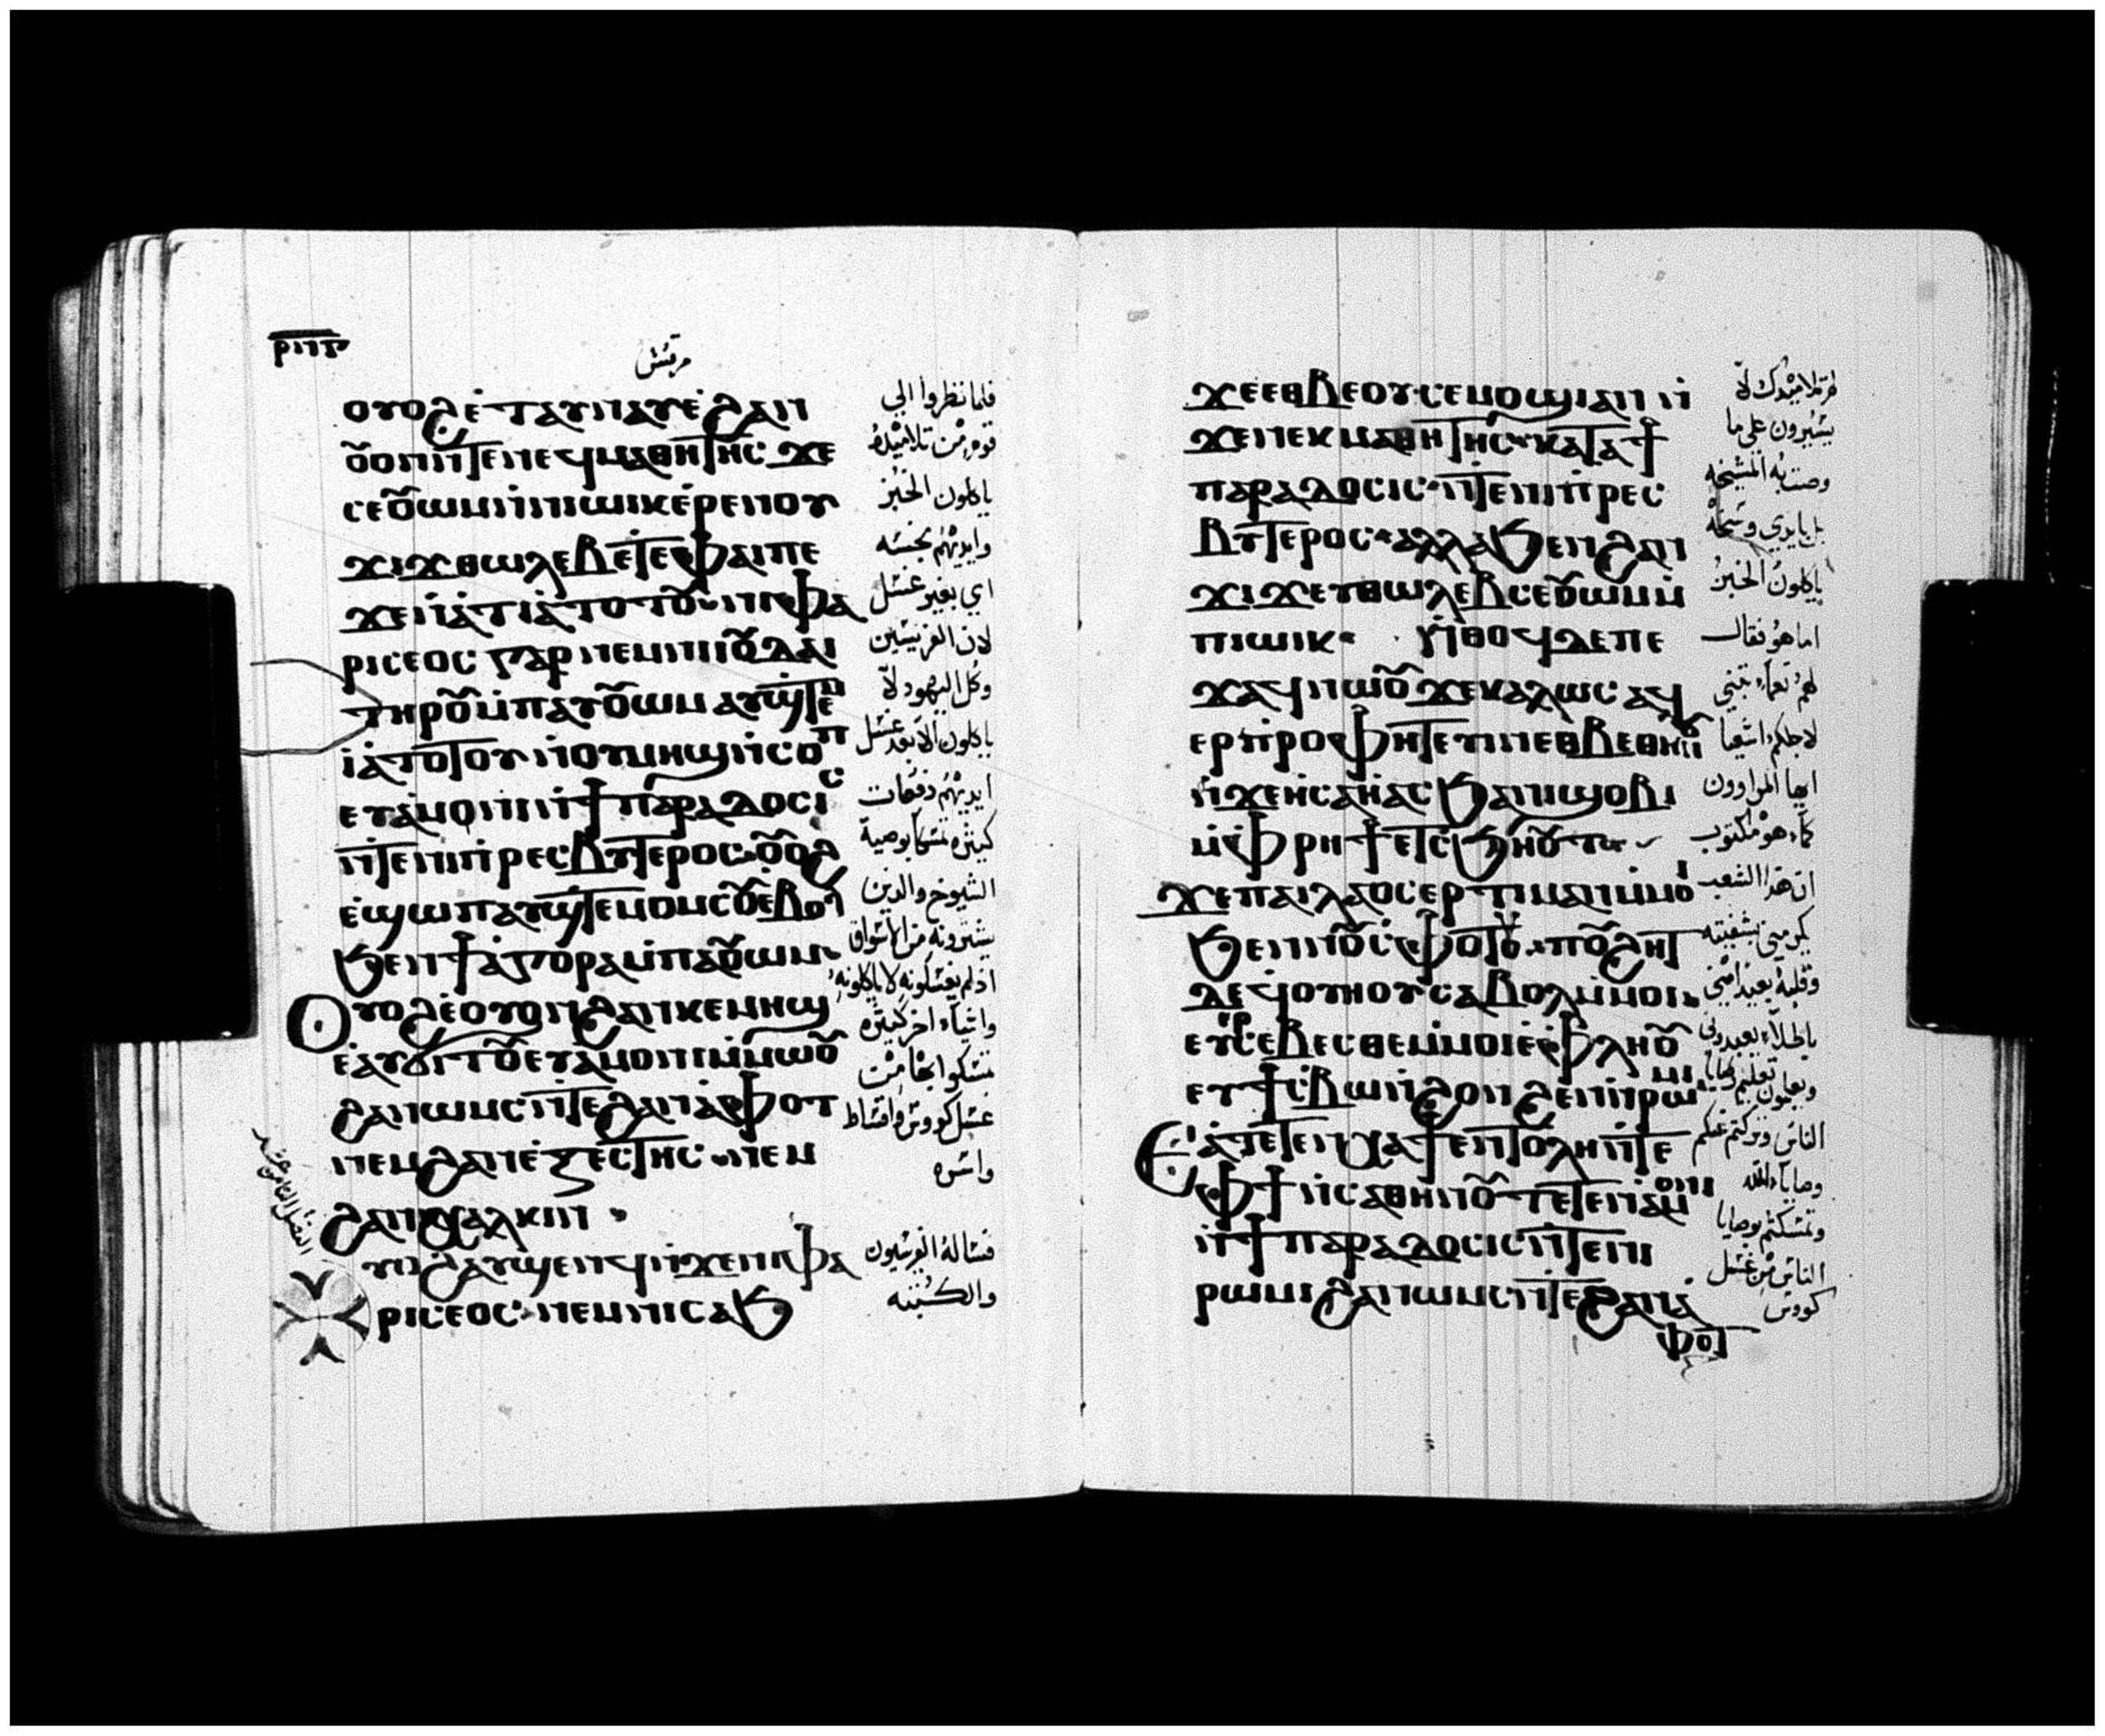 ⲣⲡⲅ
مرقس
ⲟⲩⲟϩ ⲉ̇ⲧⲁⲩⲛⲁⲩ ⲉ̇ϩⲁⲛ
ⲟ̅ⲟⲛ ⲛ̇ⲧⲉ ⲛⲉϥⲙⲁⲑⲏⲧⲏⲥ ϫⲉ
ⲥⲉⲟ̅ⲱⲙ ⲙ̇ⲡⲓⲱⲓⲕ ⲉ̇ⲣⲉ ⲛⲟⲩ
ϫⲓϫ ⲑⲱⲗⲉⲃ ⲉⲧⲉ ⲫⲁⲓ ⲡⲉ
ϫⲉ ⲛ̇ⲁⲧⲓⲁ̇ ⲧⲟⲧⲟ̅ ⲛⲓⲫⲁ
ⲣⲓⲥⲉⲟⲥ ⲅⲁⲣ ⲛⲉⲙ ⲛⲓⲓⲟ̅ⲇⲁⲓ
ⲧⲏⲣⲟ̅ ⲙ̇ⲡⲁⲩⲟ̅ⲱⲙ ⲁⲩϣⲧⲉⲙ
ⲓ̇ⲁ ⲧⲟⲧⲟⲩ ⲛ̇ⲟⲩⲙⲏϣ ⲛ̇ⲥⲟⲡ
ⲉⲩⲁ̇ⲙⲟⲛⲓ ⲛ̇ϯⲡⲁⲣⲁⲇⲟⲥⲓⲥ
ⲛ̇ⲧⲉ ⲛⲓⲡ̇ⲣⲉⲥⲃⲩⲧⲉⲣⲟⲥ ⲟ̅ⲟϩ
ⲉ̇ϣⲱⲡ ⲁⲩϣⲧⲉⲙⲟⲙⲥⲟ̅ ⲉ̇ⲃⲟⲗ
ϧⲉⲛ ϯⲁ̇ⲅⲟⲣⲁ ⲙ̇ⲡⲁⲟ̅ⲱⲙ
Ⲟⲩⲟϩ ⲉ̇ⲟⲩⲟⲛ ϩⲁⲛⲕⲉⲙⲏϣ
ⲉ̇ⲁⲩϭⲓⲧⲟ̅ ⲉⲩⲁ̇ⲙⲟⲛⲓ ⲙ̇ⲙⲱⲟ̅
ϩⲁⲛⲱⲙⲥ ⲛ̇ⲧⲉ ϩⲁⲛⲁ̇ⲫⲟⲧ
ⲛⲉⲙ ϩⲁⲛⲝⲉⲥⲧⲏⲥ ⲛⲉⲙ
ϩⲁⲛⲭⲁⲗⲕⲓⲛ
ⲩⲟϩ ⲁⲩϣⲉⲛϥ ⲛ̇ϫⲉ ⲛⲓⲫⲁ
ⲣⲓⲥⲉⲟⲥ ⲛⲉⲙ ⲛⲓⲥⲁϧ
فلما نظروا الي
قوم من تلاميذه
ياكلون الخبز
وايديهم نجسه
اي بغير غسل
لان الفريسين
وكل اليهود لا
ياكلون الا بعد غسل
ايديهم دفعات
كثيره تمسكا بوصية
الشيوخ والدين
يشترونه من الاسواق
اذ لم يغسلونه لا ياكلونه
واشياء اخر كثيره
تمسكوا بها من
غسل كووس واقساط
واسره
فساله الفريسيون
والكتبه
ϫⲉ ⲉⲑⲃⲉⲟⲩ ⲥⲉⲙⲟϣⲓ ⲁⲛ ⲛ̇
ϫⲉ ⲛⲉⲕⲙⲁⲑⲏⲧⲏⲥ ⲕⲁⲧⲁ ϯ
ⲡⲁⲣⲁⲇⲟⲥⲓⲥ ⲛ̇ⲧⲉ ⲛⲓⲡ̇ⲣⲉⲥ
ⲃⲩⲧⲉⲣⲟⲥ ⲁⲗⲗⲁ ϧⲉⲛ ϩⲁⲛ
ϫⲓϫ ⲉⲩⲑⲱⲗⲉⲃ ⲥⲉⲟ̅ⲱⲙ ⲙ̇
ⲡⲓⲱⲓⲕ ⲛ̇ⲑⲟϥ ⲇⲉ ⲡⲉ
ϫⲁϥ ⲛⲱⲟ̅ ϫⲉ ⲕⲁⲗⲱⲥ ⲁϥ
ⲉⲣⲡ̇ⲣⲟⲫⲏⲧⲉⲩⲓⲛ ⲉⲑⲃⲉⲑⲏⲛⲟ̅
ⲛ̇ϫⲉ ⲏⲥⲁⲏⲁⲥ ϧⲁ ⲛⲓϣⲟⲃⲓ
ⲙ̇ⲫⲣⲏϯ ⲉⲧⲥϧⲏⲟ̅ⲧ
ϫⲉ ⲡⲁⲓⲗⲁⲟⲥ ⲉⲣⲧⲓⲙⲁⲛ ⲙ̇ⲙⲟⲓ
ϧⲉⲛ ⲛⲟ̅ⲥⲫⲟⲧⲟ̅ ⲡⲟ̅ϩⲏⲧ
ⲇⲉ ϥⲟⲩⲏⲟⲩ ⲥⲁⲃⲟⲗ ⲙ̇ⲙⲟⲓ
ⲉⲩⲉⲣⲥⲉⲃⲉⲥⲑⲉ ⲙ̇ⲙⲟⲓ ⲉ̇ⲫⲗⲏⲟ̅
ⲉⲩϯⲥ̇ⲃⲱ ⲛ̇ϩⲟⲛϩⲉⲛ ⲛ̇ⲣⲱⲙⲓ
Ⲉⲁ̇ⲧⲉⲧⲉⲛⲭⲁ ϯⲉⲛⲧⲟⲗⲏ ⲛ̇ⲧⲉ
ⲫϯ ⲛ̇ⲥⲁⲑⲏⲛⲟ̅ ⲧⲉⲧⲉⲛⲁ̇ⲙⲟⲛⲓ
ⲛ̇ϯⲡⲁⲣⲁⲇⲟⲥⲓⲥ ⲛ̇ⲧⲉ ⲛⲓ
ⲣⲱⲙⲓ ϩⲁⲛⲱⲙⲥ ⲛ̇ⲧⲉ ϩⲁⲛⲁ̇
ⲫⲟⲧ
تلاميذك لا
يسيرون على ما
وصت به المشيخه
بل بايدي وسخه
ياكلون الخبز
اما هو فقال
لهم نعماء تنبي
لاجلكم اشعيا
ايها المراوون
كماء هو مكتوب
ان هدا الشعب
يكرمني بشفيته
وقلبه بعيد امني
باطلاء يعبدوني
ويعلمون تعليم وصايا
الناس وتركتم عنكم
وصاياء الله
وتمسكتم بوصايا
الناس من غسل
كووس